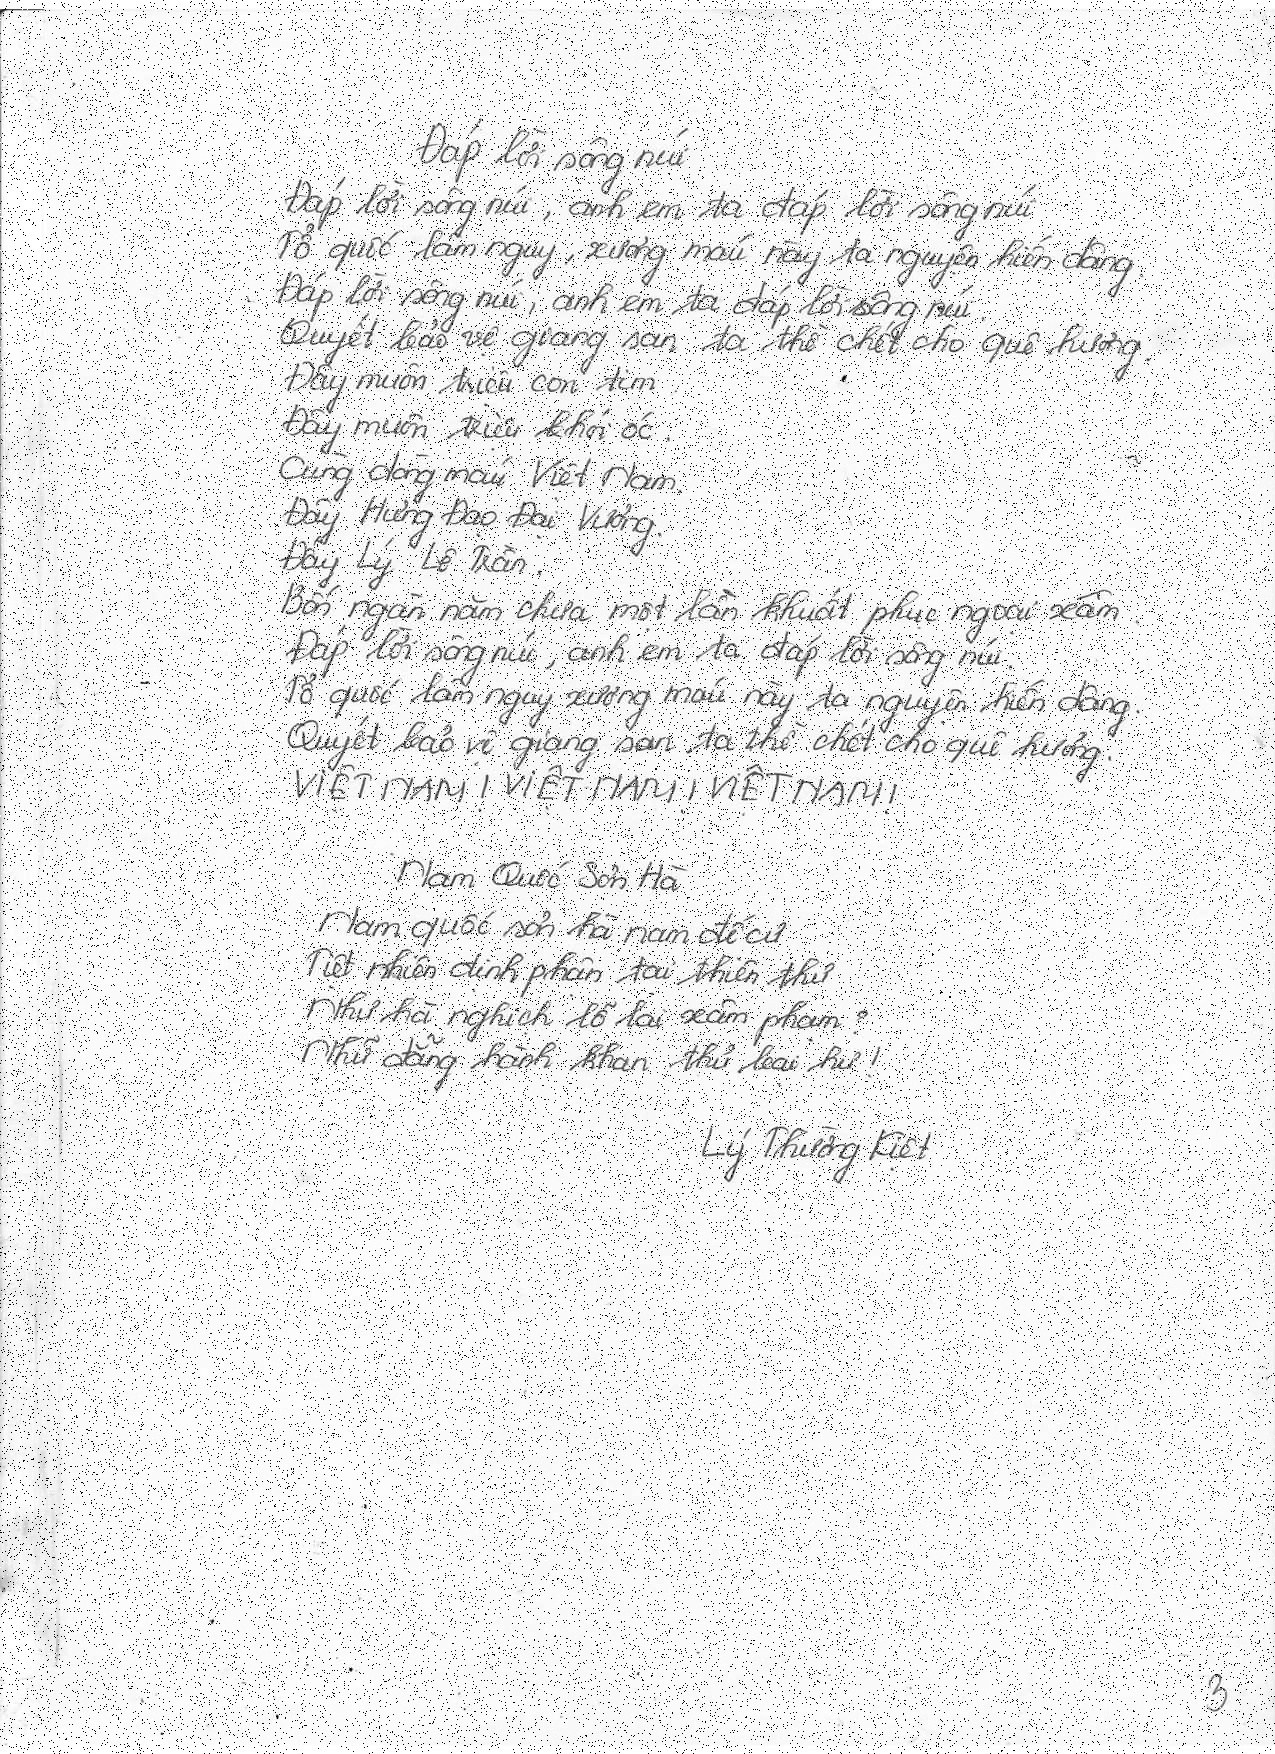 Đáp lời sông núi
Đáp lời sông núi, anh em ta đáp lời sông núi
Tổ quốc lâm nguy, xương máu này ta nguyện hiến dâng.
Đáp lời sông núi, anh em ta đáp lời sông núi.
Quyết bảo vệ giang san ta thề chết cho quê hương.
Đây muôn triệu con tim
Đây muôn triệu khối óc.
Cùng dòng máu Việt Nam.
Đây Hưng Đạo Đại Vương.
Đây Lý Lê Trần.
Bốn ngàn năm chưa một lần khuất phục ngoại xâm.
Đáp lời sông núi, anh em ta đáp lời sông núi.
Tổ quốc lâm nguy xương máu này ta nguyện hiến dâng.
Quyết bảo vệ giang san ta thề chết cho quê hương.
VIỆT NAM! VIỆT NAM! VIỆT NAM!
Nam Quốc Sơn Hà
Nam quốc sơn hà nam đế cư
Tiệt nhiên định phân tại thiên thư
Như hà nghịch lỗ lai xâm phạm?
Nhữ đẳng hành khan thủ bại hư!
Lý Thường Kiệt
3